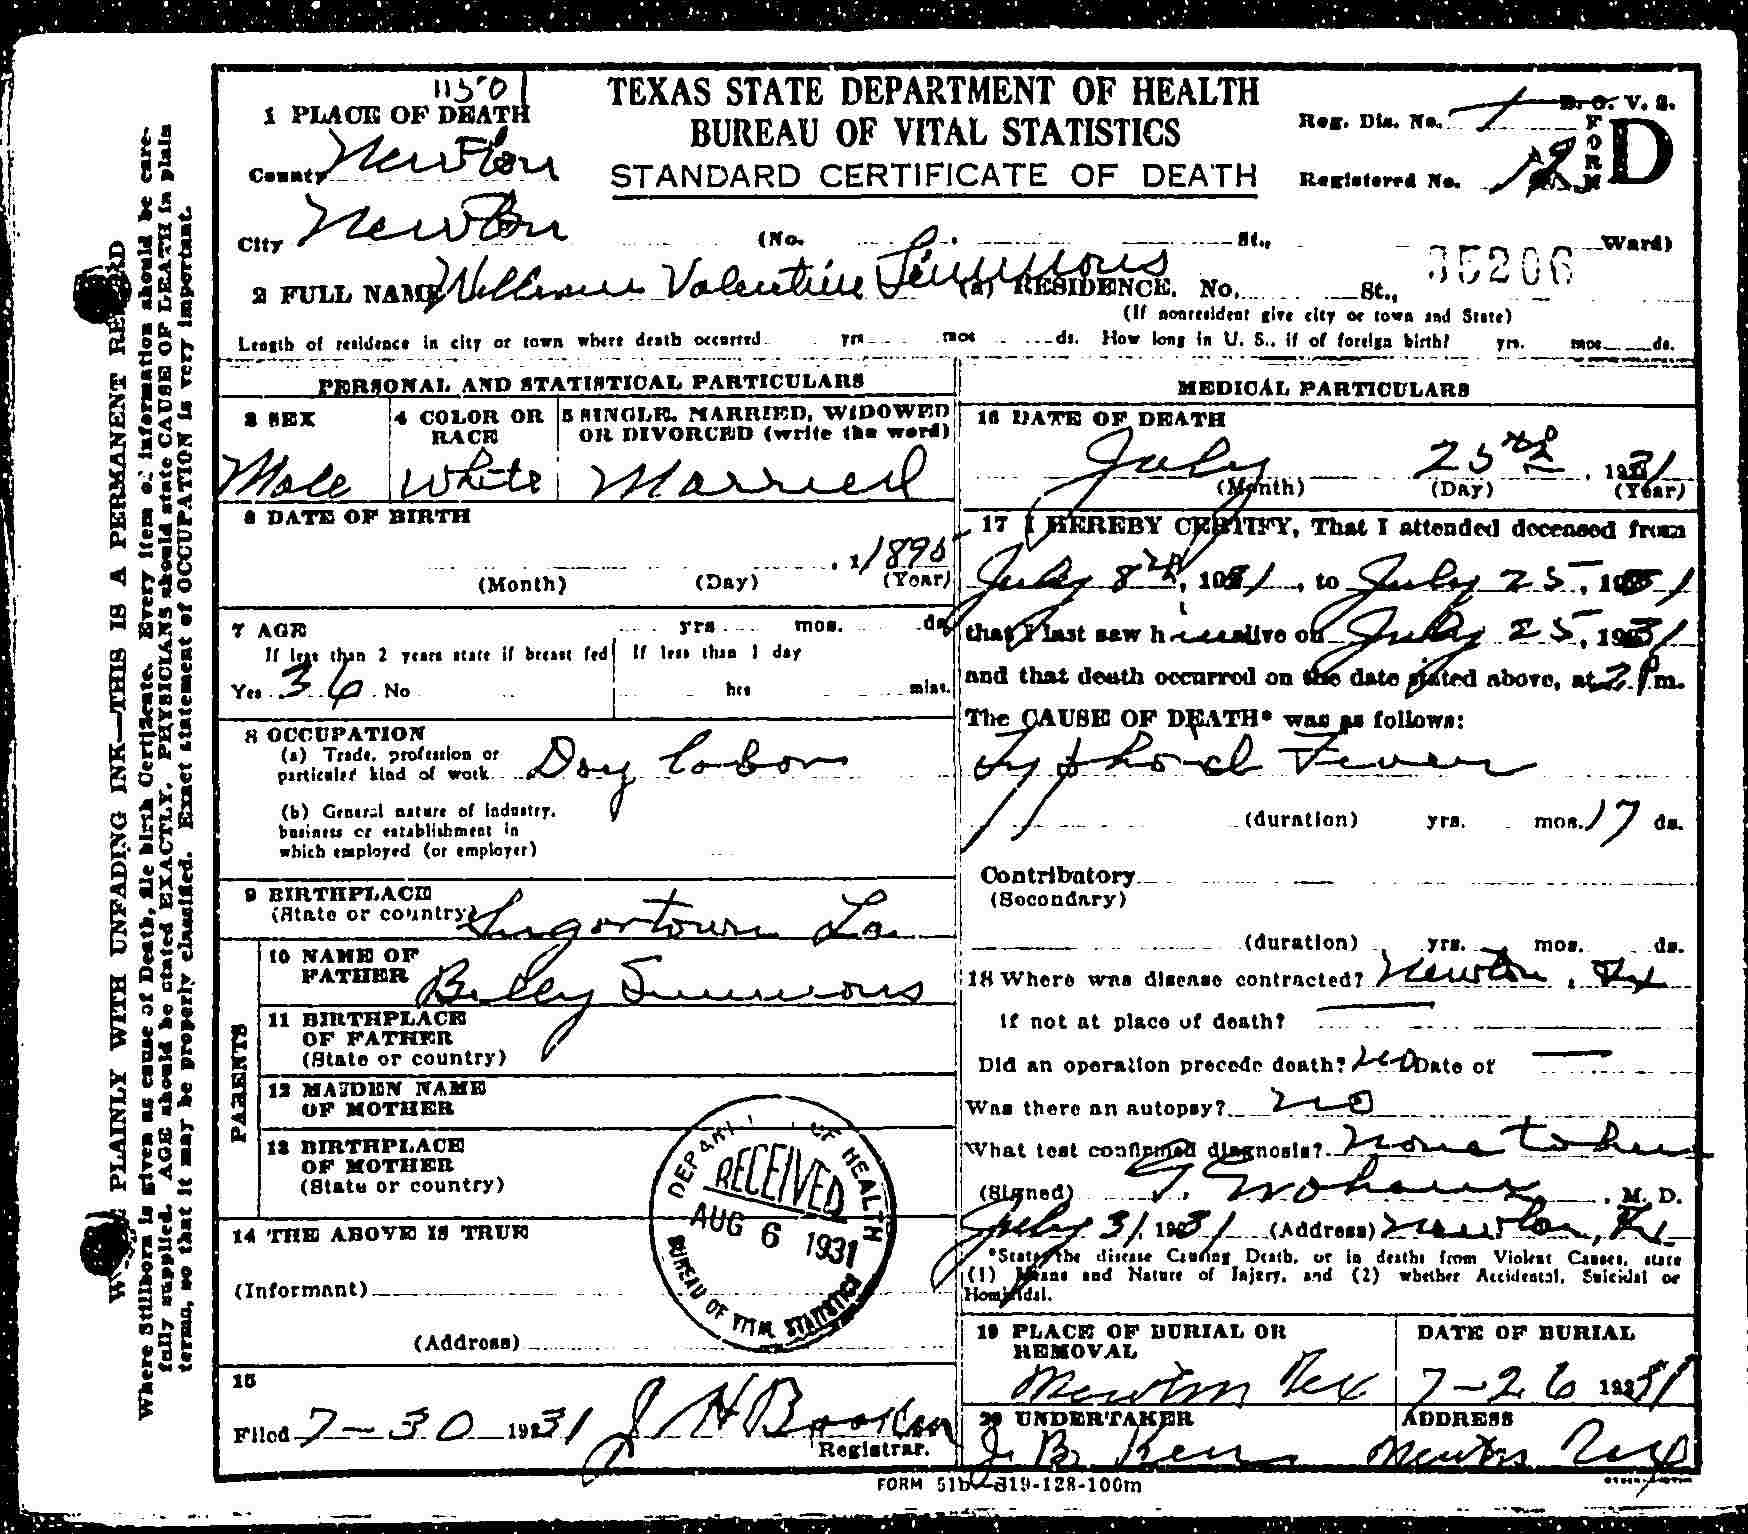 11501
TEXAS STATE DEPARTMENT OF HEALTH
BUREAU OF VITAL STATISTICS
STANDARD CERTIFICATE OF DEATH
Reg. Dis. No. 1
B. O. V. S.
FORM D
Registered No.
1 PLACE OF DEATH
County Newton
City Newton (No. St., Ward)
35206
2 FULL NAME William Valentine Simmons (a) RESIDENCE. No. St.,
(If nonresident give city or town and State)
Length of residence in city or town where death occurred yrs mos ds. How long in U. S., if of foreign birth? yrs. mos. ds.
PERSONAL AND STATISTICAL PARTICULARS
3 SEX
Male
4 COLOR OR RACE
White
5 SINGLE, MARRIED, WIDOWED
OR DIVORCED (write the word)
Married
6 DATE OF BIRTH
, 1 1895
(Month) (Day) (Year)
7 AGE yrs mos. ds.
If less than 2 years state if breast fed If less than 1 day
Yes 36 No hrs mins.
8 OCCUPATION
(a) Trade, profession or
particular kind of work Day labor
(b) General nature of industry,
business or establishment in
which employed (or employer)
9 BIRTHPLACE
(State or country) Sugartown La.
PARENTS
10 NAME OF
FATHER Billy Simmons
11 BIRTHPLACE
OF FATHER
(State or country)
12 MAIDEN NAME
OF MOTHER
13 BIRTHPLACE
OF MOTHER
(State or country)
14 THE ABOVE IS TRUE
(Informant)
(Address)
DEPART OF HEALTH
RECEIVED
AUG 6 1931
BUREAU OF VITAL STATISTICS
15
Filed 7-30 1931 J H
Registrar.
MEDICAL PARTICULARS
16 DATE OF DEATH
July 25th, 1931
(Month) (Day) (Year)
17 I HEREBY CERTIFY, That I attended deceased from
July 8th, 1931, to July 25, 1931
that I last saw him alive on July 25, 1931
and that death occurred on the date stated above, at 2 P m.
The CAUSE OF DEATH* was as follows:
Typhoid Fever
(duration) yrs. mos. 17 ds.
Contributory
(Secondary)
(duration) yrs. mos. ds.
18 Where was disease contracted? Newton, Tx
If not at place of death?
Did an operation precede death? no Date of
Was there an autopsy? no
What test confirmed diagnosis? none taken
(Signed) , M. D.
July 31, 1931 (Address) Newton, Tx.
*State the disease Causing Death, or in deaths from Violent Causes, state
(1) Means and Nature of Injury, and (2) whether Accidental, Suicidal or
Homicidal.
19 PLACE OF BURIAL OR
REMOVAL
Newton Tex
DATE OF BURIAL
7-26 1931
20 UNDERTAKER
J. B. Kerr
ADDRESS
Newton Tex
FORM 51b-819-128-100m
WRITE PLAINLY WITH UNFADING INK—THIS IS A PERMANENT RECORD
Where Stillborn is given as cause of Death, file birth Certificate. Every item of information should be care-
fully supplied. AGE should be stated EXACTLY. PHYSICIANS should state CAUSE OF DEATH in plain
terms, so that it may be properly classified. Exact statement of OCCUPATION is very important.